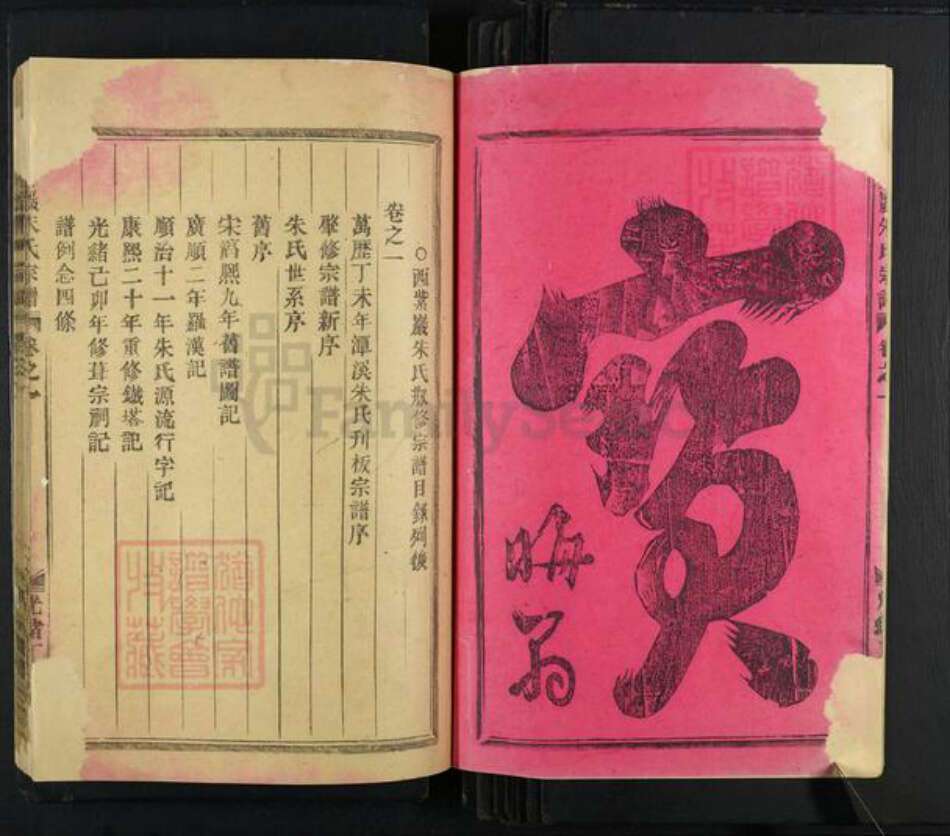 寶
晦翁
○西紫巖朱氏散修宗譜目錄列後
卷之一
萬歷丁未年潭溪朱氏刊板宗譜序
肇修宗譜新序
朱氏世系序
舊序
宋淳熙九年舊譜圖記
廣順二年羅漢記
順治十一年朱氏源流行字記
康熙二十年重修鐵塔記
光緒己卯年修葺宗祠記
譜例念四條
朱氏宗譜 卷之一
光緒
FamilySearch